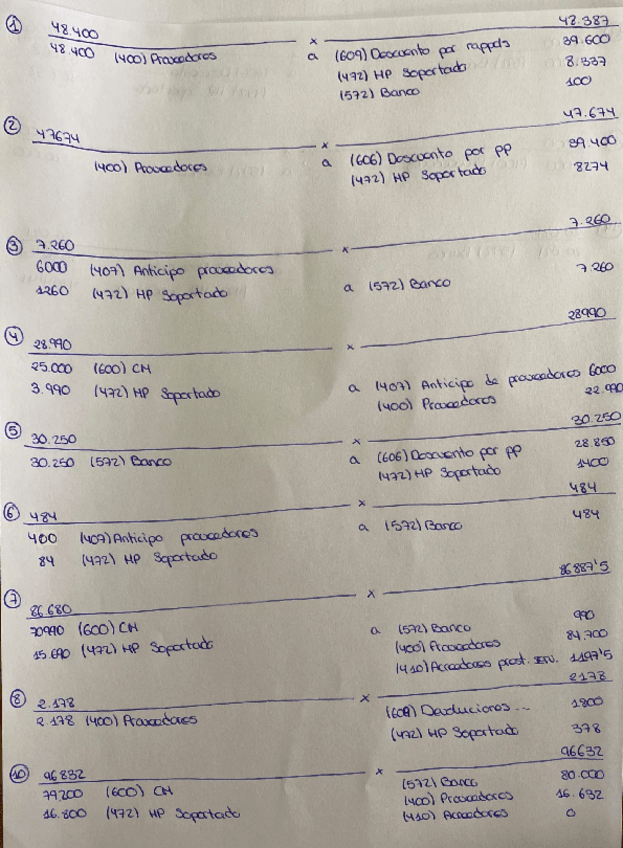 ① 48.400 x 48.387
48.400 (400) Proveedores a (609) Descuento por rappels 39.600
(472) HP Soportado 8.337
(572) Banco 100
② 47674 x 47.674
(400) Proveedores a (606) Descuento por PP 39.400
(472) HP Soportado 8274
③ 7.260 x 7.260
6000 (407) Anticipo proveedores
1260 (472) HP Soportado a (572) Banco 7.260
④ 28.990 x 28990
25.000 (600) CM
3.990 (472) HP Soportado a (407) Anticipo de proveedores 6000
(400) Proveedores 22.990
⑤ 30.250 x 30.250
30.250 (572) Banco a (606) Descuento por PP 28.850
(472) HP Soportado 1400
⑥ 484 x 484
400 (407) Anticipo proveedores a (572) Banco 484
84 (472) HP Soportado
⑦ 86.680 x 86887'5
70990 (600) CM a (572) Banco 990
15.690 (472) HP Soportado (400) Proveedores 84.700
(410) Acreedores prest. serv. 1197'5
⑧ 2.178 x 2178
2.178 (400) Proveedores (608) Devoluciones... 1800
(472) HP Soportado 378
⑩ 96832 x 96632
79200 (600) CM (572) Banco 80.000
16.800 (472) HP Soportado (400) Proveedores 16.632
(410) Acreedores 0